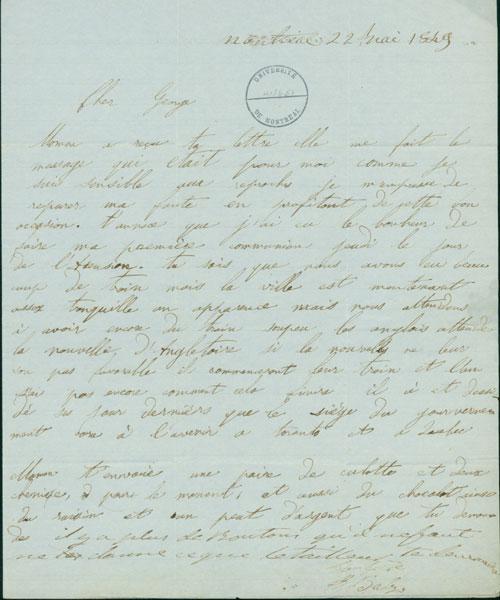 Montréal 22 Mai 1849
UNIVERSITÉ
DE MONTRÉAL
Cher George
Maman a reçu ta lettre elle me fait le
message qui était pour moi comme je
suis sensible aux reproche je m'empresse de
reparer ma faute en profitant de cette bon
occasion. t'annonce que j'ai eu le bonheur de
faire ma première communion jeudi le jour
de l'Asension tu sais que nous avons eu beau
coup de train mais la ville est maintenant
assez tranquille en apparence mais nous attendons
à avoir encore du train les anglois attende
la nouvelle d'Angleterre si la nouvelle ne leur
son pas favorable il commenceront leur train et l'on
sai pas encore comment cela il à et decidé
dé ses jour derniérs que le siége du gouverne
ment sera à l'avenir a toronto et a Quebec
Maman t'envoie une paire de culotte et deux
chemise, à pour le moment, et aussi du chocolat
du raisin et un peut d'argent que tu deman
des il y a plus de boutons qu'il ne faut
ne donne ce que le tailleur